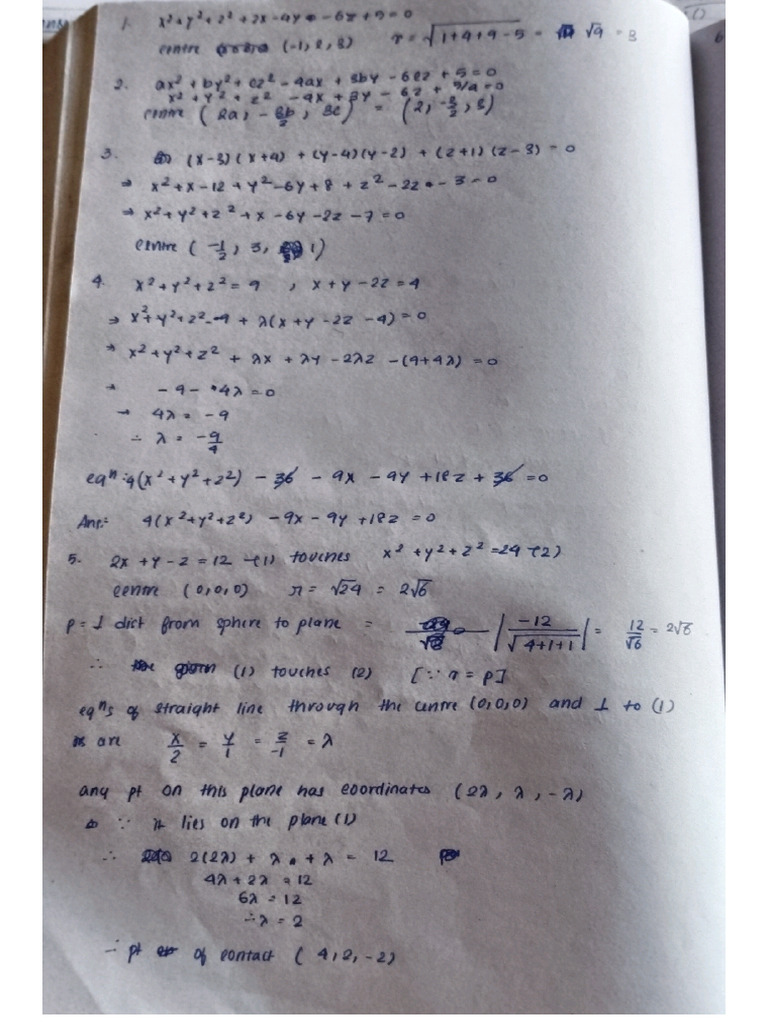 1. x²+y²+z²+2x-4y-6z+5=0
centre (-1, 2, 3) r = √1+4+9-5 = √9 = 3
2. ax²+by²+cz²-4ax+3by-6cz+5=0
x²+y²+z²-4x+3y-6z+5/a=0
centre (2a, -3b/2, 3c) = (2, -3/2, 3)
3. (x-3)(x+4)+(y-4)(y-2)+(z+1)(z-3)=0
⇒ x²+x-12+y²-6y+8+z²-2z-3=0
⇒ x²+y²+z²+x-6y-2z-7=0
centre (-1/2, 3, 1)
4. x²+y²+z²=9 , x+y-2z=4
⇒ x²+y²+z²-9+λ(x+y-2z-4)=0
⇒ x²+y²+z²+λx+λy-2λz-(9+4λ)=0
→ -9-4λ=0
→ 4λ=-9
∴ λ=-9/4
eqⁿ: 4(x²+y²+z²)-36-9x-9y+18z+36=0
Ans: 4(x²+y²+z²)-9x-9y+18z=0
5. 2x+y-z=12 -(1) touches x²+y²+z²=24 -(2)
centre (0,0,0) r=√24=2√6
p=⊥ dist from sphere to plane = |-12/√4+1+1| = 12/√6 = 2√6
∴ (1) touches (2) [∵ r=p]
eqⁿs of straight line through the centre (0,0,0) and ⊥ to (1)
are x/2 = y/1 = z/-1 = λ
any pt on this plane has coordinates (2λ, λ, -λ)
∵ it lies on the plane (1)
∴ 2(2λ)+λ+λ=12
4λ+2λ=12
6λ=12
∴λ=2
∴ pt of contact (4,2,-2)